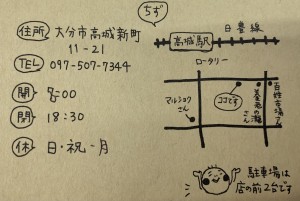 ちず
住所 大分市高城新町
11-21
TEL 097-507-7344
開 8:00
閉 18:30
休 日・祝・月
日豊線
高城駅
ロータリー
マルショクさん
ココです
養老の瀧さん
百姓市場さん
駐車場は
店の前2台です